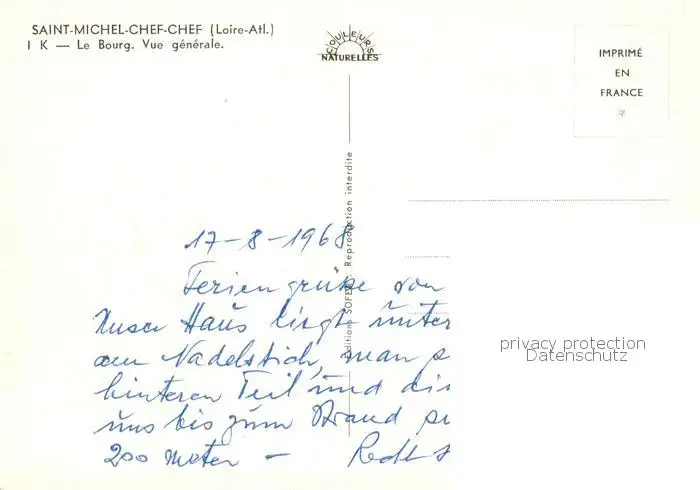 SAINT-MICHEL-CHEF-CHEF (Loire-Atl.)
I K — Le Bourg. Vue générale.
COULEURS
NATURELLES
IMPRIMÉ
EN
FRANCE
*
Editions SOFER - Reproduction interdite
17-8-1968
Feriengrüße von
Unser Haus liegt unter
am Nadelstich, man s
hinteren Teil und di
uns bis zum Strand
200 meter –
privacy protection
Datenschutz